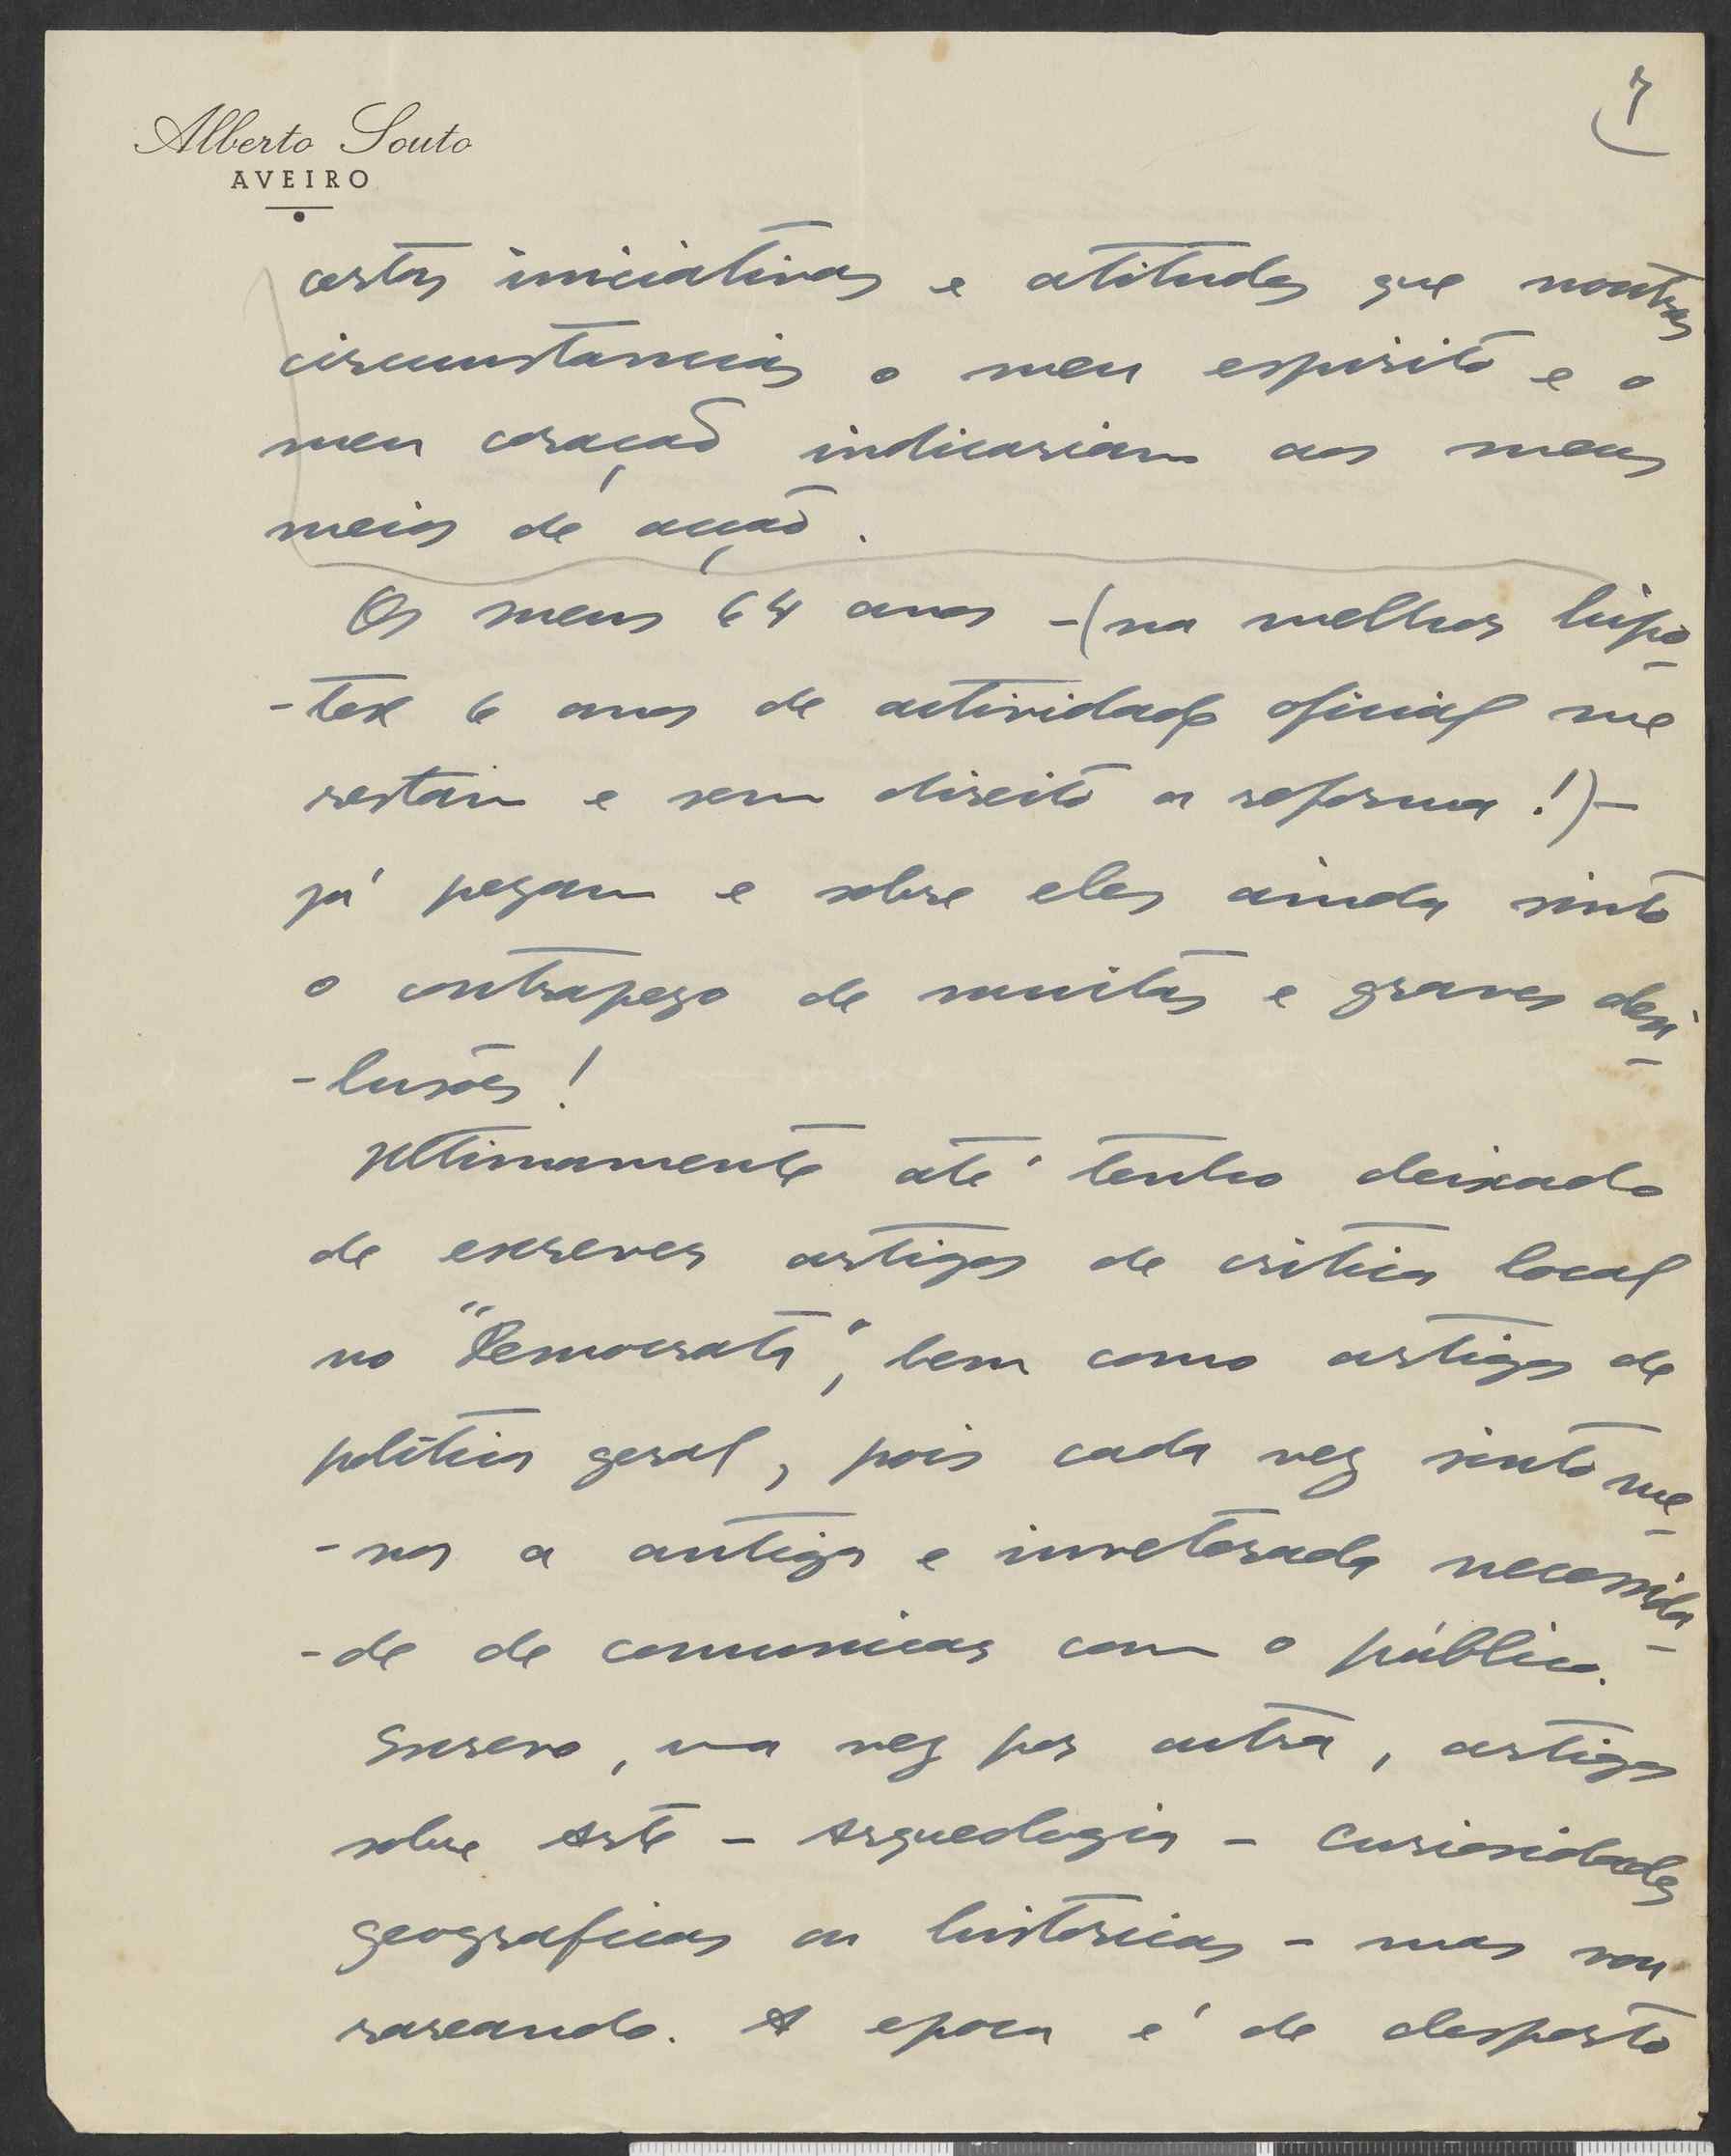 7
Alberto Souto
AVEIRO
certas iniciativas e atitudes que noutras
circunstancias o meu espirito e o
meu coração indicariam aos meus
meios de acção.
Os meus 64 anos -(na melhor hipo-
-tese 6 anos de actividade oficial me
restam e sem direito a reforma!)-
já pezam e sobre eles ainda sinto
o contrapezo de muitas e graves desi-
-lusões!
Ultimamente até tenho deixado
de escrever artigos de critica local
no "Democrata", bem como artigos de
politica geral, pois cada vez sinto me-
-nos a antiga e inveterada necessida-
-de de comunicar com o público.
Escrevo, uma vez por outra, artigos
sobre Arte - Arqueologia - Curiosidades
geograficas ou historicas - mas vou
rareando. A epoca é de desporto